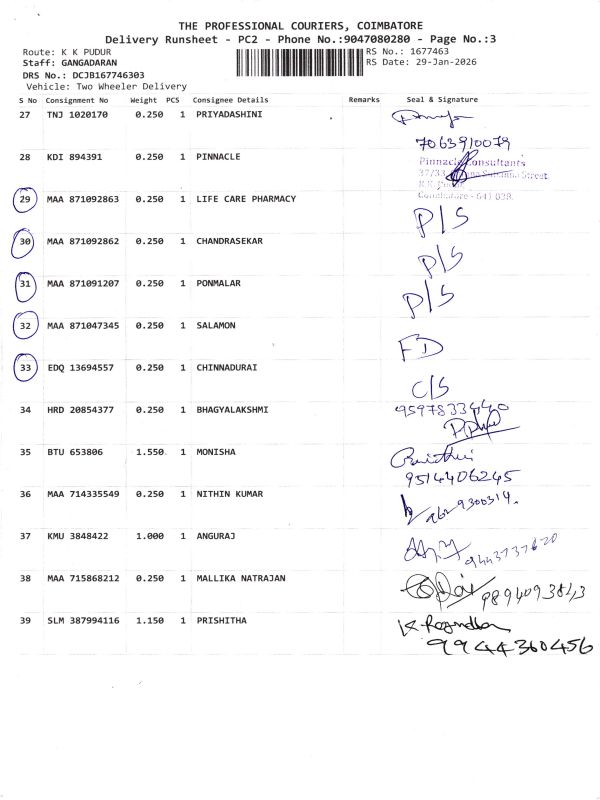 THE PROFESSIONAL COURIERS, COIMBATORE
Delivery Runsheet - PC2 - Phone No.:9047080280 - Page No.:3
Route: K K PUDUR
RS No.: 1677463
Staff: GANGADARAN
RS Date: 29-Jan-2026
DRS No.: DCJB167746303
Vehicle: Two Wheeler Delivery
S No Consignment No Weight PCS Consignee Details Remarks Seal & Signature
27 TNJ 1020170 0.250 1 PRIYADASHINI
7063910079
28 KDI 894391 0.250 1 PINNACLE
Pinnacle Consultants
37/33 Subanna Street
K.K. Pudur
Coimbatore - 641 038.
29 MAA 871092863 0.250 1 LIFE CARE PHARMACY P/S
30 MAA 871092862 0.250 1 CHANDRASEKAR P/S
31 MAA 871091207 0.250 1 PONMALAR P/S
32 MAA 871047345 0.250 1 SALAMON FD
33 EDQ 13694557 0.250 1 CHINNADURAI C/S
34 HRD 20854377 0.250 1 BHAGYALAKSHMI 9597833440
35 BTU 653806 1.550 1 MONISHA
9514406245
36 MAA 714335549 0.250 1 NITHIN KUMAR
37 KMU 3848422 1.000 1 ANGURAJ 9443737620
38 MAA 715868212 0.250 1 MALLIKA NATRAJAN 9894093843
39 SLM 387994116 1.150 1 PRISHITHA
9944360456